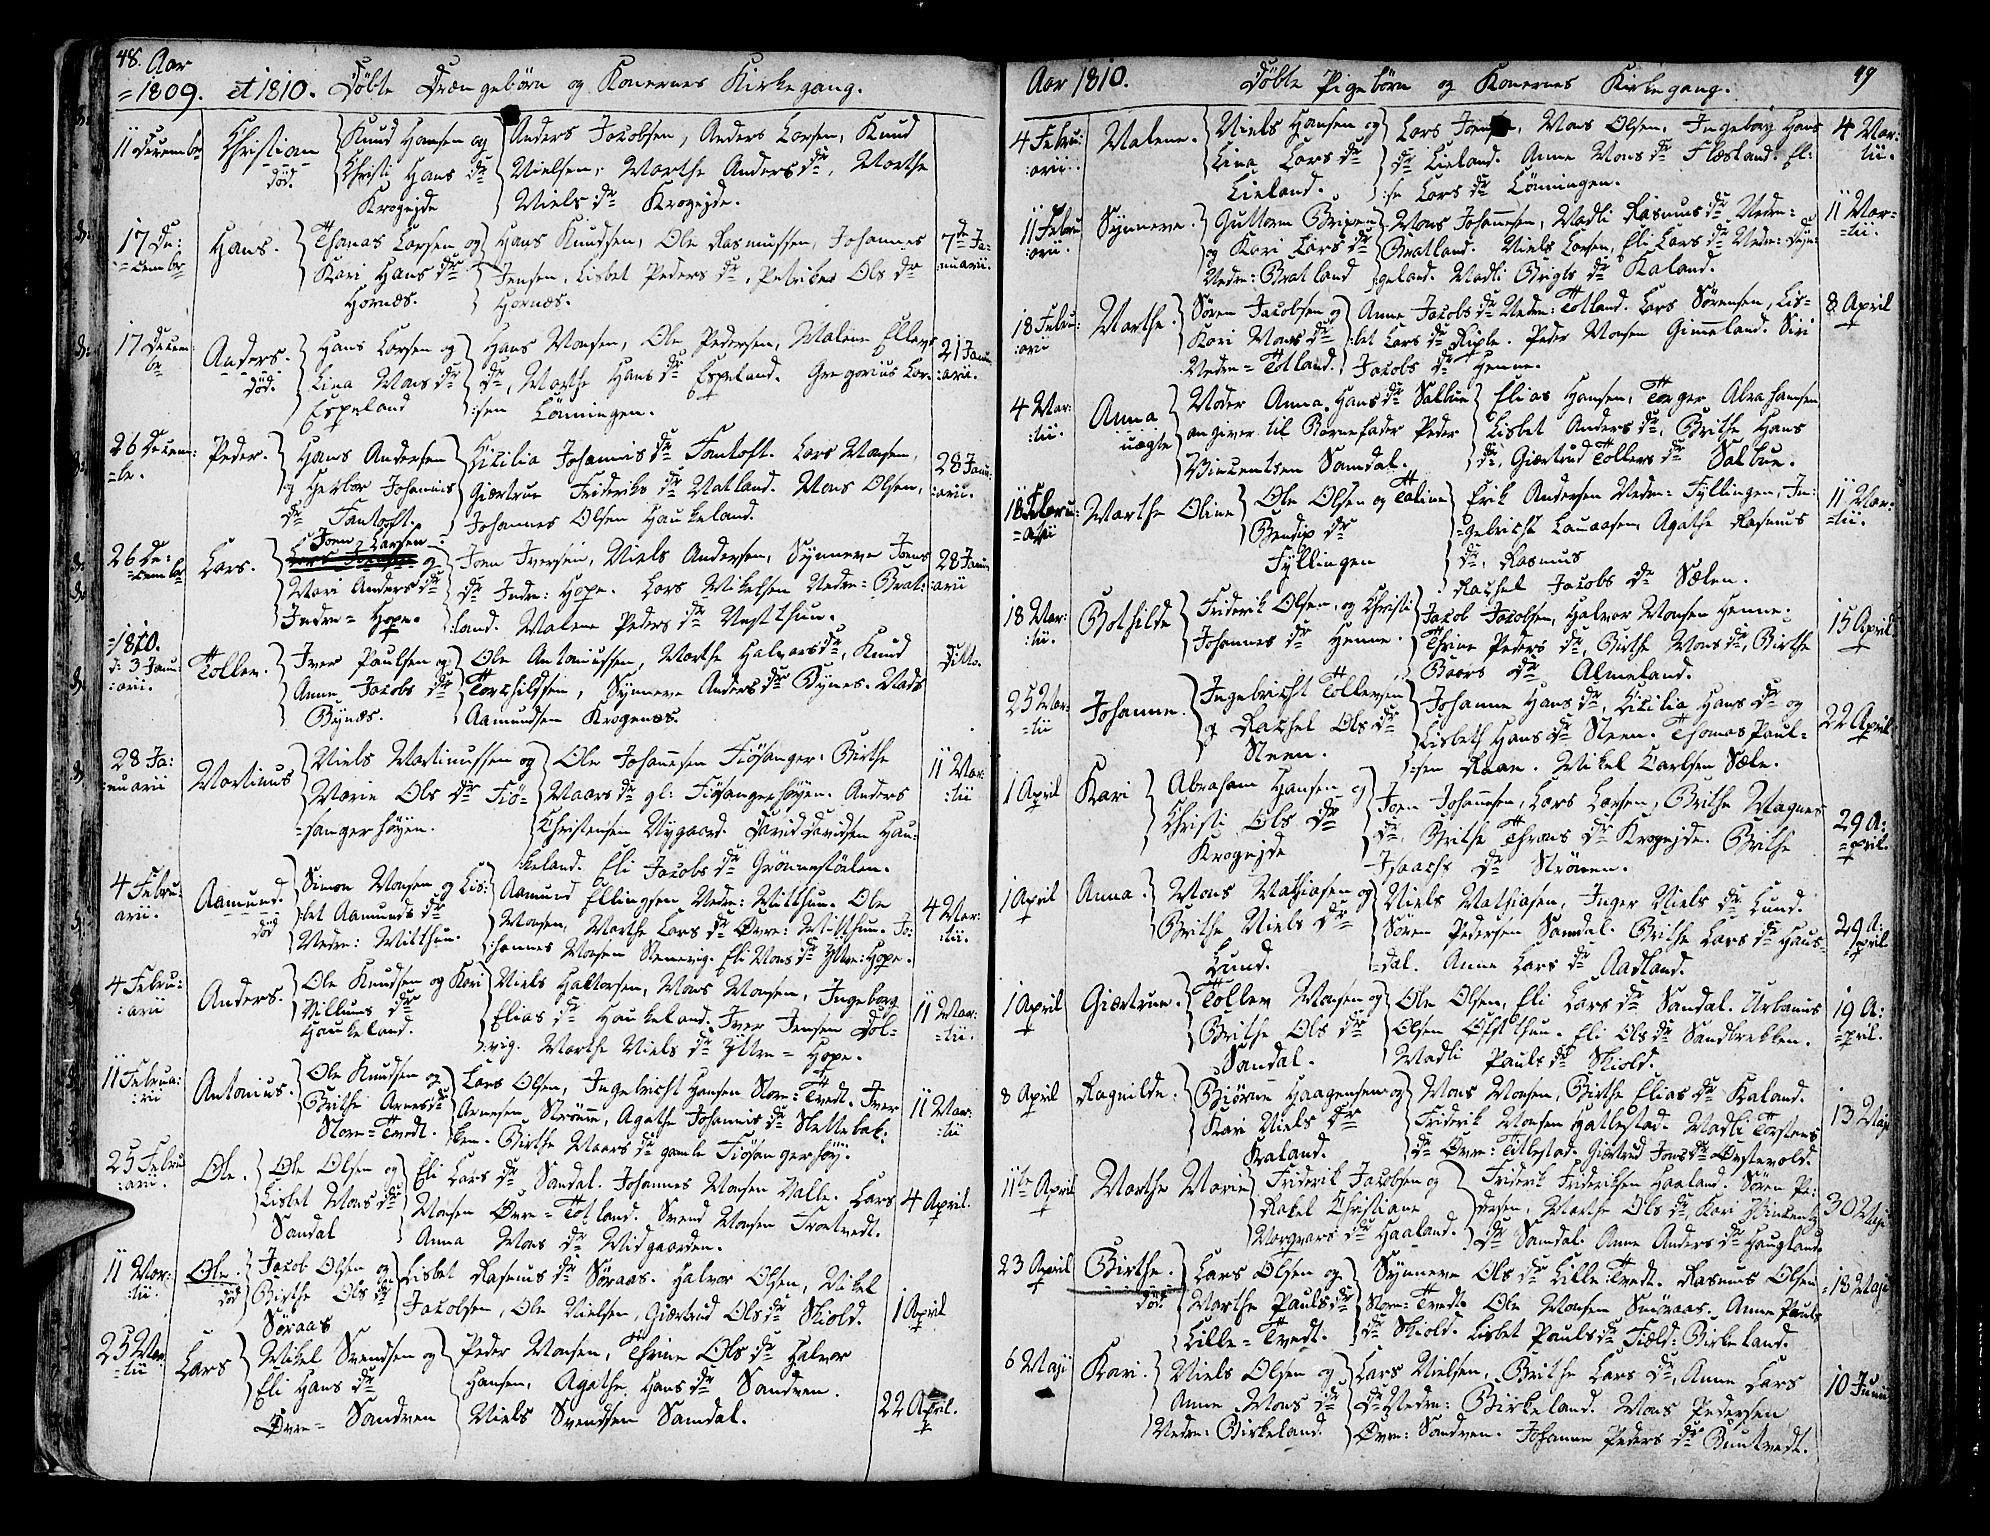 48. Aar
=1809. et 1810. Döbte Drengebörn og Konernes Kirkegang.
11 Decembr Christian död. Knud Hansen og Christi Hans dr Krogejde
Anders Jacobsen, Anders Larsen, Knud
Nielsen, Marthe Anders dr, Marthe
Niels dr Krogejde.
17 De:cembr Hans. Thomas Larsen og Kari Hans dr Hornæs.
Hans Knudsen, Ole Rasmussen, Johannes
Jensen, Lisbet Peders dr, Petrikee Ols dr
Hornæs. 7de Ja:nuarii.
17 Decembr Anders. död. Hans Larsen og Lina Mons dr Espeland
Hans Monsen, Ole Pedersen, Malene Ellens
dr, Marthe Hans dr Espeland. Gregorius Lar:
:sen Lönningen. 21 Janu:arii.
26 Decem:br. Peder. Hans Andersen og Herbor Johannis dr Fantoft.
Cicilia Johannis dr Fantoft. Lars Monsen,
Giærtrue Friderichs dr Natland. Mons Olsen,
Johannes Olsen Haukeland. 28 Janu:arii.
26 De:cembr Lars. Joen Larsen og Mari Anders dr Indre= Hope.
Joen Iversen, Niels Andersen, Synneve Joens
dr Indre: Hope. Lars Mikelsen Nedre= Brat:
:land. Malene Peders dr Vestthun. 28 Janu:arii
=1810.
d: 3 Janu:arii. Tollev. Iver Paulsen og Anne Jacobs dr Bynæs.
Ole Antoniussen, Marthe Halvors dr, Knud
Torchildsen, Synneve Anders dr Bynes. Mads
Aamundsen Krogenæs. Ditto.
28 Ja:nuarii Martinus Niels Martinussen og Marie Ols dr Fiö=sangerhöyen.
Ole Johannesen Fiösanger. Birthe
Maars dr gl: Fiösangerhöyen. Anders
Christensen Nygaard. David Davidsen Hau:
:keland. Eli Jacobs dr Grönnestölen. 11 Mar:tii
4 Febru:arii. Aamund. död Simon Monsen og Lis:bet Aamunds dr Nedre: Mitthun.
Aamund Ellingsen Nedre: Mitthun. Ole
Monsen, Marthe Lars dr Övre: Mitthun. Jo:
:hannes Monsen Stenevig. Eli Mons dr Yttre: Hope. 4 Mar:tii.
4 Febru:arii Anders. Ole Knudsen og Kari Villums dr Haukeland.
Niels Haltorsen, Mons Monsen, Ingeborg
Elias dr Haukeland. Iver Jensen Dol:
:vig. Marthe Niels dr Yttre= Hope. 11 Mar:tii.
11 Februa:rii Antonius. Ole Knudsen og Brithe Arnes dr Store= Tvedt.
Lars Olsen, Ingebricht Hansen Store= Tvedt. Iver
Arnesen Strömme, Agathe Johannis dr Slettebak:
ken. Birthe Maars dr gamle Fiösangerhöy. 11 Mar:tii
25 Febru:arii. Ole. Ole Olsen og Lisbet Mons dr Sandal
Eli Lars dr Sandal. Johannes Monsen Nalle. Lars
Monsen Övre= Totland. Svend Monsen Troetvedt.
Anna Mons dr Midgaarden. 4 April.
11 Mar:tii. Ole. död Jacob Olsen og Birthe Ols dr Söraas
Lisbet Rasmus dr Söraas. Halvor Olsen, Mikel
Jacobsen, Ole Nielsen, Giærtrud Ols dr Skiold. 1 April
25 Mar:tii Lars Mikel Svendsen og Eli Hans dr Övre= Sandven
Peder Monsen, Thrine Ols dr Halvor
Hansen, Agathe Hans dr Sandven.
Niels Svendsen Samdal. 22 April.
Aar 1810. Döbte Pigebörn og Konernes Kirkegang. 49
4 Febru:arii. Malene. Niels Hansen og Lina Lars dr Lieland.
Lars Joens, Mons Olsen, Ingeborg Hans
dr Lieland. Anne Mons dr Flæsland. El:
:se Lars dr Lönningen. 4 Mar:tii.
11 Febru:arii. Synneve. Guttorm Brigen og Kari Lars dr Nedre: Bratland
Mons Johannesen, Madli Rasmus dr Nedre:
Bratland. Niels Larsen, Eli Lars dr Nedre:
geland. Madli Brigts dr Kaland. 11 Mar=tii.
18 Febru:arii Marthe. Sören Jacobsen og Kari Mons dr Nedre= Totland.
Anne Jacobs dr Nedre: Totland. Lars Sörensen, Lis=
:bet Lars dr Riple. Peder Monsen Gimmeland. Siri
Jacobs dr Henne. 8 April
4 Mar:tii. Anna uægte Moder Anna Hans dr Salbue
angiver til Barnefader Peder
Vincentsen Samdal.
Elias Hansen, Torger Abrahamsen
Lisbet Anders dr, Brithe Hans
dr, Giærtrud Tollevs dr Salbue.
18 Febru:arii Marthe Oline Ole Olsen og Taline Bendix dr Fyllingen
Erik Andersen Nedre= Fyllingen, In=
=gebricht Lauaasen, Agathe Rasmus
dr, Rasmus
Rachel Jacobs dr Sælen. 11 Mar:tii.
18 Mar:tii. Bothilde Friderik Olsen, og Christi Johannes dr Henne.
Jacob Jacobsen, Halvor Monsen Henne.
Thrine Peders dr, Birthe Mons dr, Birthe
Baars dr Almeland. 15 April
25 Mar=tii Johanne. Ingebricht Tollevsen og Rachel Ols dr Steen.
Johanne Hans dr, Cicilia Hans dr og
Lisbeth Hans dr Steen. Thomas Paul=
:sen Raae. Mikel Carlsen Sæle. 22 April
1 April Kari Abraham Hansen og Christi Ols dr Krogejde
Joen Johannesen, Lars Larsen, Brithe Magnes
dr, Brithe Throns dr Krogejde. Brithe
Isaachs dr Strönen. 29 A:pril.
1 April Anna. Mons Mathiasen og Brithe Niels dr Lund.
Niels Mathiasen, Inger Niels dr Lund.
Sören Pedersen Samdal. Brithe Lars dr Haus=
=dal. Anne Lars dr Aadland. 29 A:pril.
1 April Giærtrue. Tollev Monsen og Brithe Ols dr Sandal.
Ole Olsen, Eli Lars dr Sandal. Urbanus
Olsen Öfstthun. Eli Ols dr Sandbrekken.
Madli Pauls dr Skiold. 19 A:pril.
8 April Ragnilde. Biörne Haagensen og Kari Niels dr Kaland.
Mons Monsen, Birthe Elias dr Kaland.
Friderik Monsen Hatlestad. Madli Torstens
dr Övre: Titlestad. Giærtrud Jons dr Örstevold. 13 Maji
11te April Marthe Marie Friderik Jacobsen og Rakel Christiane Morgvars dr Haaland.
Friderik Frideriksen Haaland. Sören Pe:
dersen, Marthe Ols dr, Kari Vincentz
dr Samdal. Anne Anders dr Haugland. 30 Maji
23 April Birthe. död. Lars Olsen og Marthe Pauls dr Lille= Tvedt.
Synneve Ols dr Lille Tvedt. Rasmus Olsen
Store= Tvedt. Ole Monsen Smöraas. Anne Pauls
dr Skiold. Lisbet Pauls dr Field: Birkeland. 13 Maji
6 Maji Kari. Niels Olsen og Anne Mons dr Nedre: Birkeland.
Lars Nielsen, Brithe Lars dr, Anne Lars
dr Nedre: Birkeland. Mons Pedersen
Övre: Sandven. Johanne Peders dr Buntvedt. 10 Junii